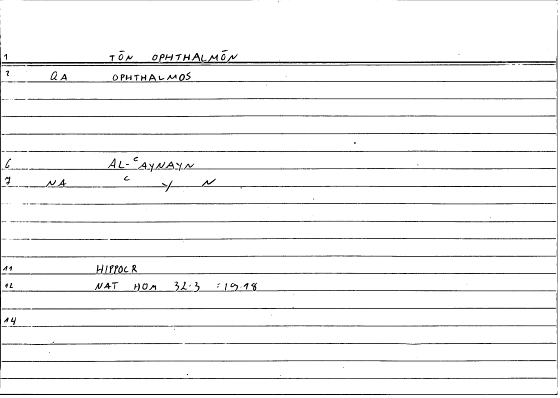 1 TŌN OPHTHALMŌN
2 QA OPHTHALMOS
6 AL-ᶜAYNAYN
7 NA ᶜ Y N
11 HIPPOCR
12 NAT HOM 32.3 :19.18
14